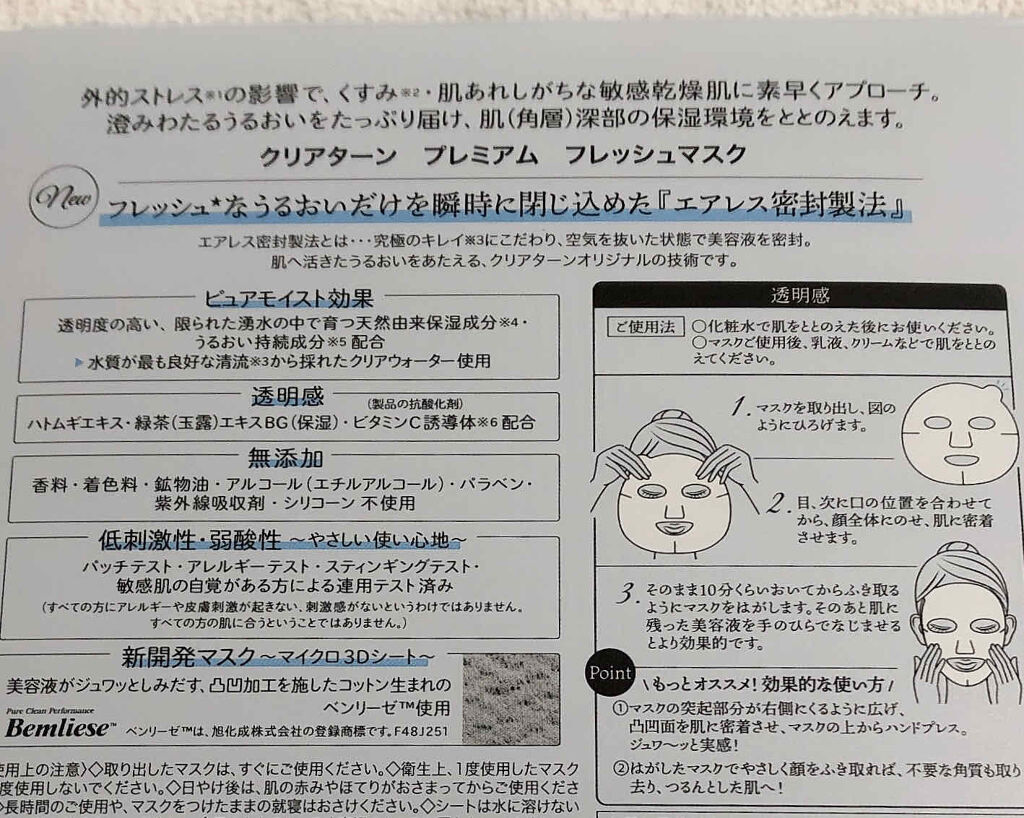 外的ストレス※1の影響で、くすみ※2・肌あれしがちな敏感乾燥肌に素早くアプローチ。
澄みわたるうるおいをたっぷり届け、肌(角層)深部の保湿環境をととのえます。
クリアターン プレミアム フレッシュマスク
New
フレッシュ★なうるおいだけを瞬時に閉じ込めた『エアレス密封製法』
エアレス密封製法とは・・・究極のキレイ※3にこだわり、空気を抜いた状態で美容液を密封。
肌へ活きたうるおいをあたえる、クリアターンオリジナルの技術です。
ピュアモイスト効果
透明度の高い、限られた湧水の中で育つ天然由来保湿成分※4・
うるおい持続成分※5 配合
▶水質が最も良好な清流※3から採れたクリアウォーター使用
透明感
(製品の抗酸化剤)
ハトムギエキス・緑茶(玉露)エキスBG(保湿)・ビタミンC誘導体※6 配合
無添加
香料・着色料・鉱物油・アルコール(エチルアルコール)・パラベン・
紫外線吸収剤・シリコーン 不使用
低刺激性・弱酸性 ~やさしい使い心地~
パッチテスト・アレルギーテスト・スティンギングテスト・
敏感肌の自覚がある方による連用テスト済み
(すべての方にアレルギーや皮膚刺激が起きない、刺激感がないというわけではありません。
すべての方の肌に合うということではありません。)
新開発マスク~マイクロ3Dシート~
美容液がジュワッとしみだす、凸凹加工を施したコットン生まれの
ベンリーゼ™使用
Pure Clean Performance
Bemliese™ ベンリーゼ™は、旭化成株式会社の登録商標です。F48J251
使用上の注意〉◇取り出したマスクは、すぐにご使用ください。◇衛生上、1度使用したマスク
度使用しないでください。◇日やけ後は、肌の赤みやほてりがおさまってからご使用くださ
◇長時間のご使用や、マスクをつけたままの就寝はおさけください。◇シートは水に溶けない
透明感
ご使用法 ○化粧水で肌をととのえた後にお使いください。
○マスクご使用後、乳液、クリームなどで肌をととの
えてください。
1. マスクを取り出し、図の
ようにひろげます。
2. 目、次に口の位置を合わせて
から、顔全体にのせ、肌に密着
させます。
3. そのまま10分くらいおいてからふき取る
ようにマスクをはがします。そのあと肌に
残った美容液を手のひらでなじませる
とより効果的です。
Point
\もっとオススメ!効果的な使い方/
①マスクの突起部分が右側にくるように広げ、
凸凹面を肌に密着させ、マスクの上からハンドプレス。
ジュワ~ッと実感!
②はがしたマスクでやさしく顔をふき取れば、不要な角質も取り
去り、つるんとした肌へ!